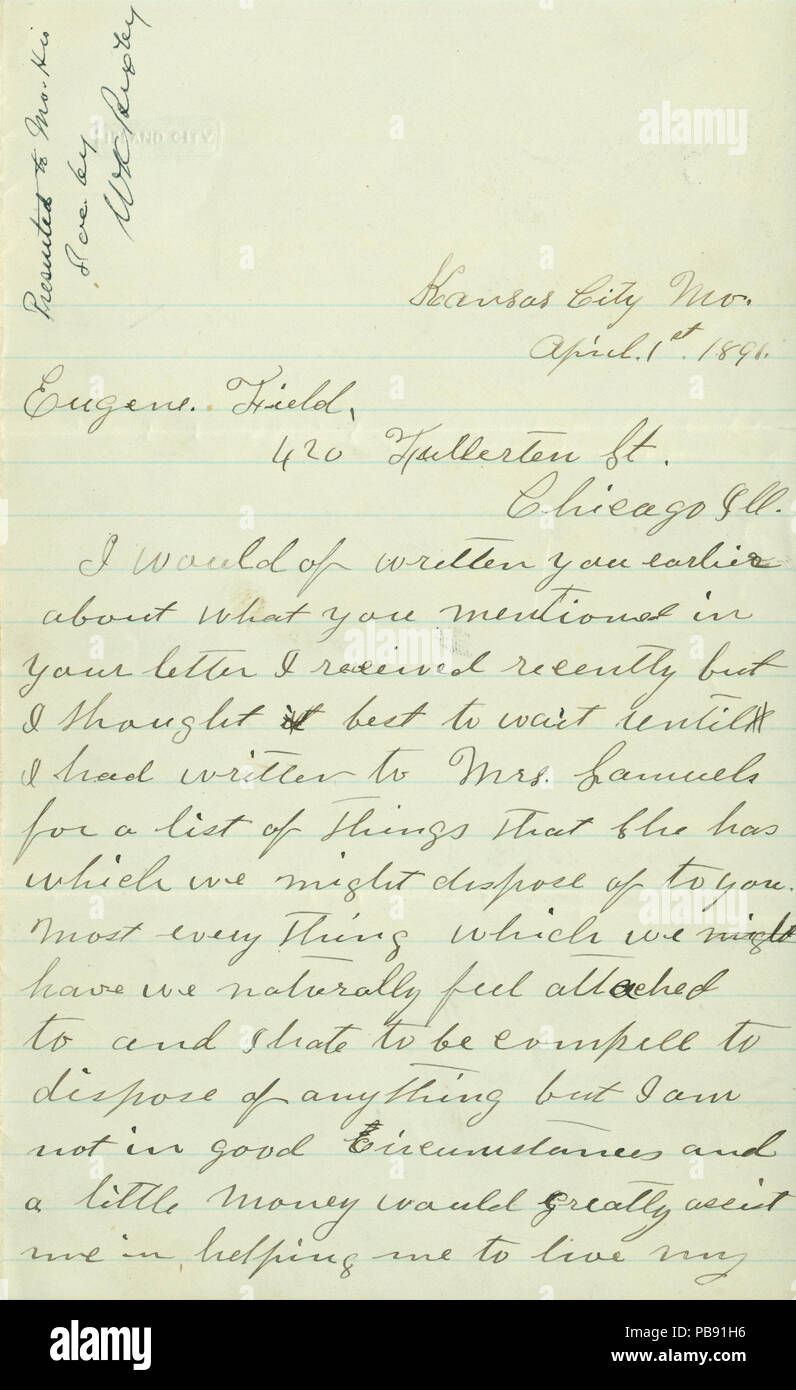 Presented to Mo. His
Soc. by
WK Bixby
Kansas City Mo.
April. 1st. 1891.
Eugene. Field,
420 Fullerten St.
Chicago Ill.
I would of written you earlier
about what you mentioned in
your letter I received recently but
I thought it best to wait until
I had written to Mrs. Samuels
for a list of things that she has
which we might dispose of to you.
Most every thing which we might
have we naturally feel attached
to and I hate to be compell to
dispose of anything but I am
not in good Circumstances and
a little money would greatly assist
me in helping me to live my
alamy
alamy
alamy
alamy
Image ID: PB91H6
www.alamy.com